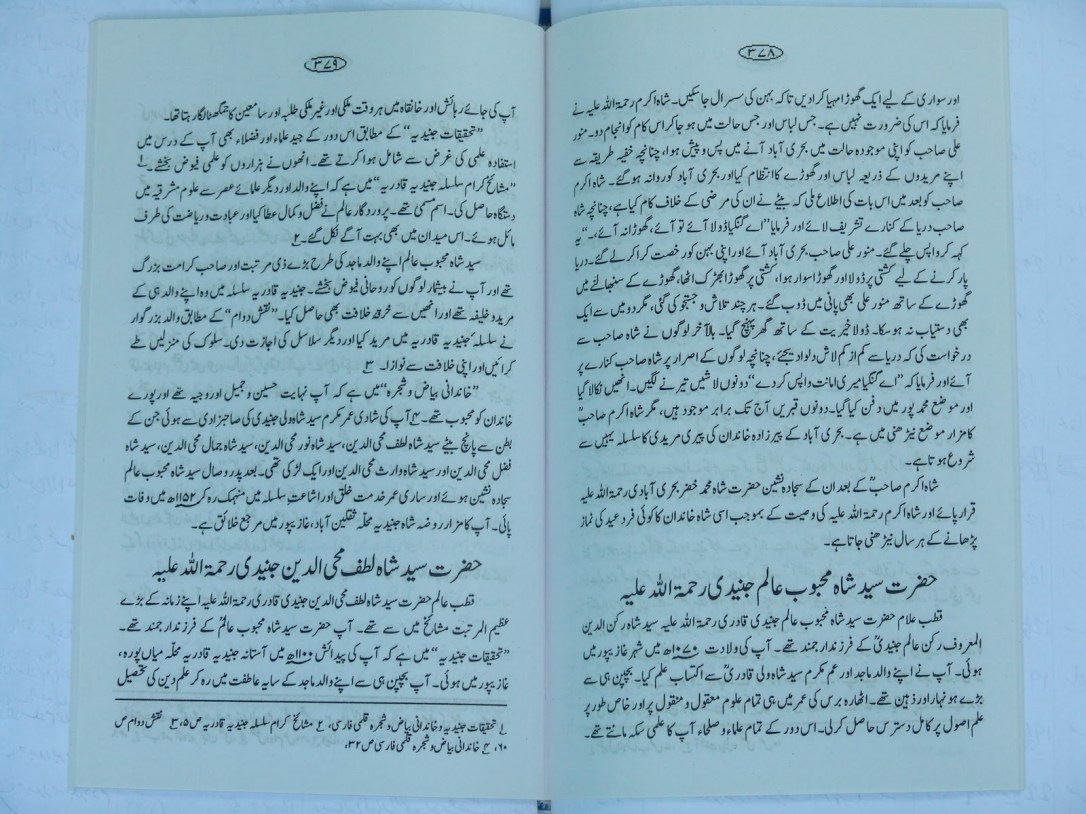 ۳۷۸
اور سواری کے لیے ایک گھوڑا مہیا کرا دیں تاکہ بہن کی سسرال جا سکیں۔ شاہ اکرم رحمۃ اللہ علیہ نے
فرمایا کہ اس کی ضرورت نہیں ہے۔ جس لباس اور جس حالت میں ہو جا کر اس کام کو انجام دو۔ منور
علی صاحب کو اپنی موجودہ حالت میں بحری آباد آنے میں پس و پیش ہوا، چنانچہ خفیہ طریقہ سے
اپنے مریدوں کے ذریعہ لباس اور گھوڑے کا انتظام کیا اور بحری آباد کو روانہ ہوگئے۔ شاہ اکرم
صاحب کو بعد میں اس بات کی اطلاع ملی کہ بیٹے نے ان کی مرضی کے خلاف کام کیا ہے، چنانچہ شاہ
صاحب دریا کے کنارے تشریف لائے اور فرمایا ”اے گنگیا ڈولا آئے تو آئے، گھوڑا نہ آئے،۔“ یہ
کہہ کر واپس چلے گئے۔ منور علی صاحب بحری آباد آئے اور اپنی بہن کو رخصت کرا کر لے گئے۔ دریا
پار کرنے کے لیے کشتی پر ڈولا اور گھوڑا سوار ہوا، کشتی پر گھوڑا بھڑک اٹھا، گھوڑے کے سنبھالنے میں
گھوڑے کے ساتھ منور علی بھی پانی میں ڈوب گئے۔ ہر چند تلاش و جستجو کی گئی، مگر دو میں سے ایک
بھی دستیاب نہ ہوسکا۔ ڈولا خیریت کے ساتھ گھر پہنچ گیا۔ بالآخر لوگوں نے شاہ صاحب سے
درخواست کی کہ دریا سے کم از کم لاش دلوا دیجئے، چنانچہ لوگوں کے اصرار پر شاہ صاحب کنارے پر
آئے اور فرمایا کہ ”اے گنگیا میری امانت واپس کردے“ دونوں لاشیں تیرنے لگیں۔ انھیں نکالا گیا
اور موضع محمد پور میں دفن کیا گیا۔ دونوں قبریں آج تک برابر موجود ہیں، مگر شاہ اکرم صاحبؒ
کا مزار موضع نیڑھنی میں ہے۔ بحری آباد کے پیر زادہ خاندان کی پیری مریدی کا سلسلہ یہیں سے
شروع ہوتا ہے۔
شاہ اکرم صاحبؒ کے بعد ان کے سجادہ نشین حضرت شاہ محمد خضر بحری آبادی رحمۃ اللہ علیہ
قرار پائے اور شاہ اکرم رحمۃ اللہ علیہ کی وصیت کے بموجب اسی شاہ خاندان کا کوئی فرد عید کی نماز
پڑھانے کے ہر سال نیڑھنی جاتا ہے۔
حضرت سید شاہ محبوب عالم جنیدی رحمۃ اللہ علیہ
قطب علام حضرت سید شاہ محبوب عالم جنیدی قادری رحمۃ اللہ علیہ سید شاہ رکن الدین
المعروف رکن عالم جنیدیؒ کے فرزند ارجمند تھے۔ آپ کی ولادت ۱۰۷۰ھ میں شہر غازیپور میں
ہوئی۔ آپ نے اپنے والد ماجد اور عم مکرم سید شاہ ولی قادریؒ سے اکتساب علم کیا۔ بچپن ہی سے
بڑے ہونہار اور ذہین تھے۔ اٹھارہ برس کی عمر میں ہی تمام علوم معقول و منقول پر اور خاص طور پر
علم اصول پر کامل دسترس حاصل کرلی۔ اس دور کے تمام علماء و صلحاء آپ کا علمی سکہ مانتے تھے۔
۳۷۹
آپ کی جائے رہائش اور خانقاہ میں ہر وقت ملکی اور غیر ملکی طلبہ اور سامعین کا جمگھٹا لگا رہتا تھا۔
”تحقیقات جنیدیہ“ کے مطابق اس دور کے جید علماء اور فضلاء بھی آپ کے درس میں
استفادہ علمی کی غرض سے شامل ہوا کرتے تھے۔ انھوں نے ہزاروں کو علمی فیوض بخشے۔ ۱
”مشائخ کرام سلسلہ جنیدیہ قادریہ“ میں ہے کہ اپنے والد اور دیگر علمائے عصر سے علوم مشرقیہ میں
دستگاہ حاصل کی۔ اسم مسمی تھے۔ پروردگار عالم نے فضل و کمال عطا کیا اور عبادت و ریاضت کی طرف
مائل ہوئے۔ اس میدان میں بھی بہت آگے نکل گئے۔ ۲
سید شاہ محبوب عالم اپنے والد ماجد کی طرح بڑے ذی مرتبت اور صاحب کرامت بزرگ
تھے اور آپ نے بیشمار لوگوں کو روحانی فیوض بخشے۔ جنیدیہ قادریہ سلسلہ میں وہ اپنے والد ہی کے
مرید و خلیفہ تھے اور انھیں سے خرقہ خلافت بھی حاصل کیا۔ ”نقش دوام“ کے مطابق والد بزرگوار
نے سلسلہ جنیدیہ قادریہ میں مرید کیا اور دیگر سلاسل کی اجازت دی۔ سلوک کی منزلیں طے
کرائیں اور اپنی خلافت سے نوازا۔ ۳
”خاندانی بیاض و شجرہ“ میں ہے کہ آپ نہایت حسین و جمیل اور وجیہ تھے اور پورے
خاندان کو محبوب تھے۔ ۴ آپ کی شادی عم مکرم سید شاہ ولی جنیدی کی صاحبزادی سے ہوئی جن کے
بطن سے پانچ بیٹے سید شاہ لطف محی الدین، سید شاہ نور محی الدین، سید شاہ جمال محی الدین، سید شاہ
فضل محی الدین اور سید شاہ وارث محی الدین اور ایک لڑکی تھی۔ بعد پدر وصال سید شاہ محبوب عالم
سجادہ نشین ہوئے اور ساری عمر خدمت خلق اور اشاعت سلسلہ میں منہمک رہ کر ۱۱۵۲ھ میں وفات
پائی۔ آپ کا مزار روضہ شاہ جنیدیہ محلہ ثقلین آباد، غازیپور میں مرجع خلائق ہے۔
حضرت سید شاہ لطف محی الدین جنیدی رحمۃ اللہ علیہ
قطب عالم حضرت سید شاہ لطف محی الدین جنیدی قادری رحمۃ اللہ علیہ اپنے زمانہ کے بڑے
عظیم المرتبت مشائخ میں سے تھے۔ آپ حضرت سید شاہ محبوب عالمؒ کے فرزند ارجمند تھے۔
”تحقیقات جنیدیہ“ میں ہے کہ آپ کی پیدائش ۱۱۰۰ھ میں آستانہ جنیدیہ قادریہ محلہ میاں پورہ،
غازیپور میں ہوئی۔ آپ بچپن ہی سے اپنے والد ماجد کے سایہ عاطفت میں رہ کر علم دین کی تحصیل
۱ تحقیقات جنیدیہ و خاندانی بیاض و شجرہ قلمی فارسی، ۲ مشائخ کرام سلسلہ جنیدیہ قادریہ ص ۵، ۳ نقش دوام ص
۶۰، ۴ خاندانی بیاض و شجرہ قلمی فارسی ص ۳۲،